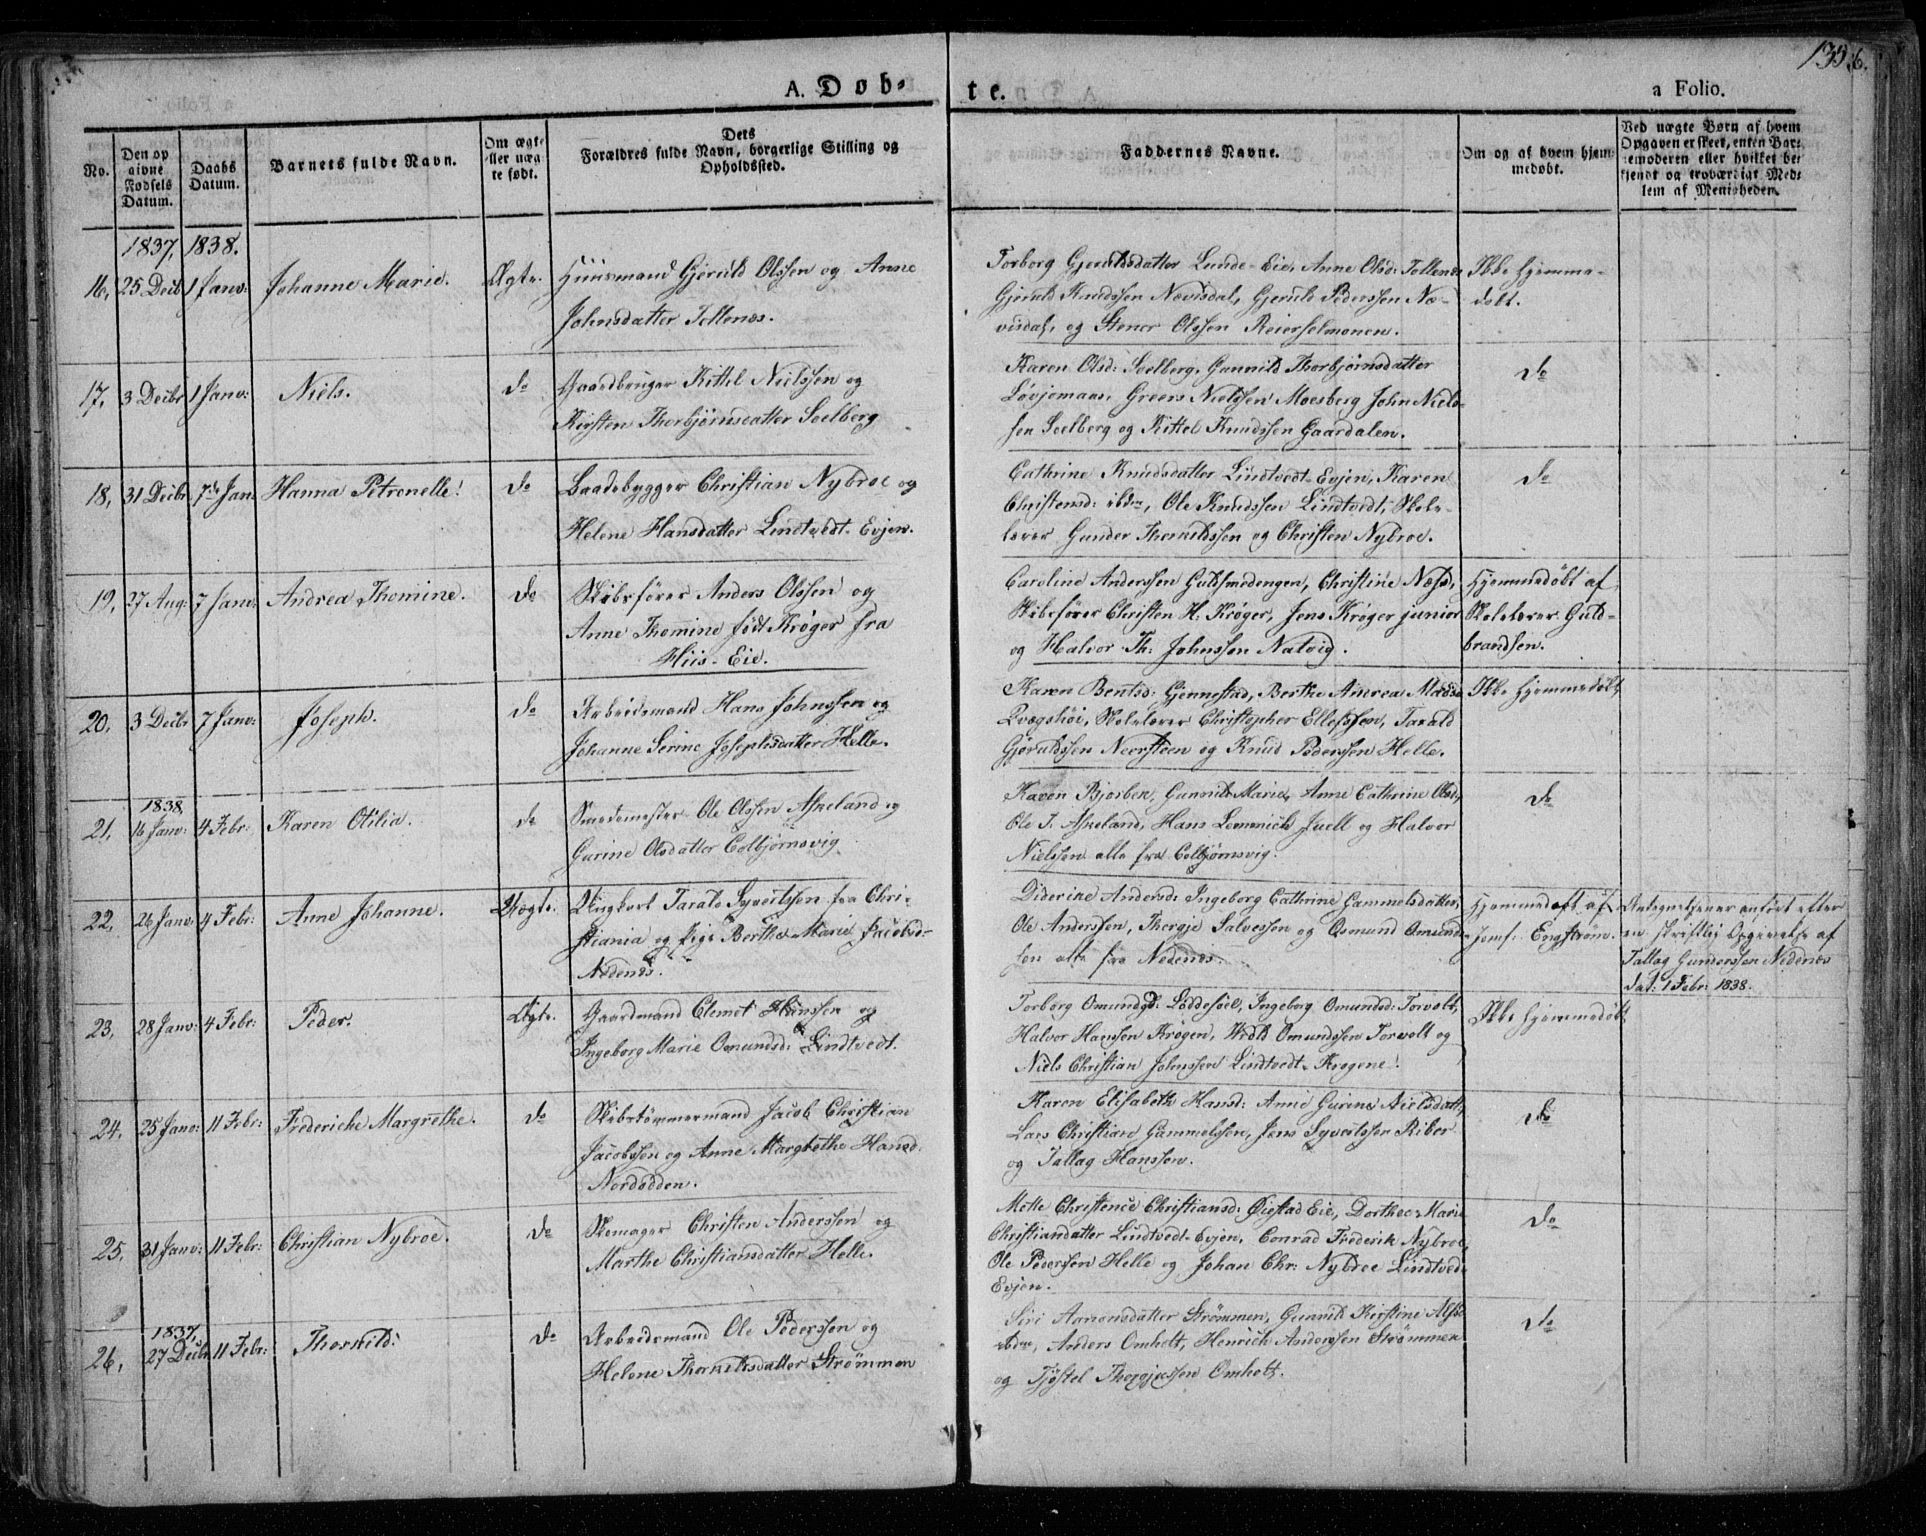 135 6.
A. Döb- te.
a Folio.
No.
Den op
givne
Födsels
Datum.
Daabs
Datum.
Barnets fulde Navn.
Om ægte
eller uæg-
te födt.
Dets
Forældres fulde Navn, borgerlige Stilling og
Opholdssted.
Faddernes Navne.
Om og af hvem hjem-
medöbt.
Ved uægte Børn af hvem
Opgaven er skeet, enten Bar-
nemoderen eller hvilket be-
kjendt og troværdigt Med-
lem af Menigheden.
1837, 1838.
16, 25 Decb 1 Janv: Johanne Marie. Ægte. Huusmand Gjeruld Olssen og Anne
Johnsdatter Tellenæs.
Torborg Gjeruldsdatter Lunde-Eie, Anne Olsd: Tellenæs
Gjeruld Knudssen Nævisdal, Gjeruld Pederssen Næ-
visdal, og Stener Olssen Reierselmonen.
Ikke hjemme-
døbt.
17, 3 Decbr 1 Janv: Niels. do Gaardbruger Kittel Nielssen og
Kirsten Thorbjørnsdatter Solberg
Karen Olsd: Solberg, Gunnild Thorbjørnsdatter
Løvjomaas, Greers Nielssen Moesberg John Niels-
sen Solberg og Kittel Knudssen Gaardalen.
do
18, 31 Decbr 7de Jan: Hanna Petronelle! do Baadebygger Christian Nybroe og
Helene Hansdatter Lindtvedt-Evjen.
Cathrine Knudsdatter Lindtvedt-Evjen, Karen
Christensd: ibdm, Ole Knudssen Lindtvedt, Skole-
lærer Gunder Thorkildssen og Christen Nybroe.
do
19, 27 Aug: 7 Janv: Andrea Thomine. do Skibsfører Anders Olssen og
Anne Thomine født Krøger fra
Hiis-Eie.
Caroline Anderssen Guldsmedengen, Christine Næss,
Skibsfører Christen H. Krøger, Jens Krøger junior
og Halvor Th: Johnssen Natvig.
Hjemmedøbt af
Skolelærer Guld-
brandsen.
20, 3 Decbr 7 Janv: Joseph. do Arbeidsmand Hans Johnssen og
Johanne Serine Josephsdatter Helle.
Karen Bentsd: Gjennestad, Berthe Andrea
Skolelærer Christopher Ellefssen, Tarald
Gjeruldssen Neersteen og Knud Pederssen Helle.
Ikke hjemmedøbt
1838,
21, 16 Janv: 4 Febr: Karen Otilia. do Smedemester Ole Olssen Askeland og
Gurine Olsdatter Colbjørnsvig
Karen Bjorben, Gunnild Marie, Anne Cathrine Olsd,
Ole J. Askeland, Hans Lemmich Juell og Halvor
Nielssen alle fra Colbjørnsvig.
do
22, 26 Janv: 4 Febr: Anne Johanne. Uægte. Ungkarl Tarald Syvertssen fra Chri-
stiania og Pige Berthe Marie Jacobsd-
Nedenæs.
Diderine Andersd: Ingeborg Cathrine Gammelsdatter,
Ole Anderssen, Thergje Salvessen og Osmund Omund-
sen alle fra Nedenæs.
Hjemmedøbt af
Jomf: Engstrøm.
anført efter
en skriftlig Opgivelse af
Tallag Gunderssen Nedenæs
dat: 1 Febr: 1838.
23, 28 Janv: 4 Febr: Peder. Ægte. Gaardmand Clemet Hanssen og
Ingeborg Marie Omundsd: Lindtvedt.
Torborg Omundsd: Løddesøel, Ingeborg Omundsd: Torvolt,
Halvor Hanssen Krøgen, Omundssen Torvolt og
Niels Christian Johnssen Lindtvedt-Krøgene!
Ikke hjemmedøbt
24, 25 Janv: 11 Febr: Frederiche Margrethe. do Skibstømmermand Jacob Christian
Jacobssen og Anne Margrethe Hansd.
Nordodden.
Karen Elisabeth Hansd: Anne Gurine Nielsdatt,
Lars Christian Gammelssen, Jens Syvertssen Riber
og Tallag Hanssen.
do
25, 31 Janv: 11 Febr: Christian Nybroe. do Skomager Christen Anderssen og
Marthe Christiansdatter Helle.
Mette Christence Christiansd: Øiestad Eie, Dorthee Marie
Christiandatter Lindtvedt-Evjen, Conrad Frederik Nybroe,
Ole Pederssen Helle og Johan Chr: Nybroe Lindtvedt-
Evjen.
do
1837,
26, 27 Decbr 11 Febr: Thorkild: do Arbeidsmand Ole Pederssen og
Helene Thorkildsdatter Strømmen
Siri Aanonsdatter Strømmen, Gunnild Kirstine
ibdm, Anders Omholt, Henrich Anderssen Strømmen
og Tjøstel Thergjussen Omholt.
do